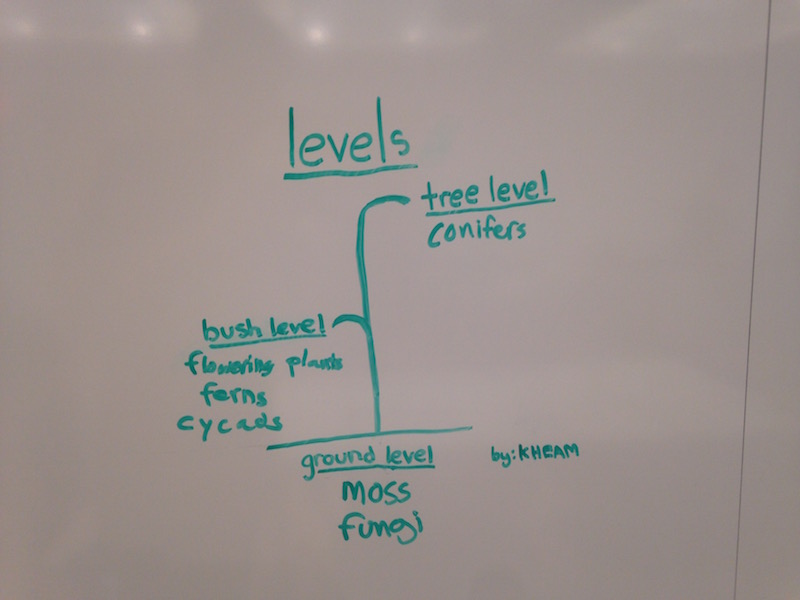 levels
tree level
conifers
bush level
flowering plants
ferns
cycads
ground level
by: KHEAM
moss
fungi